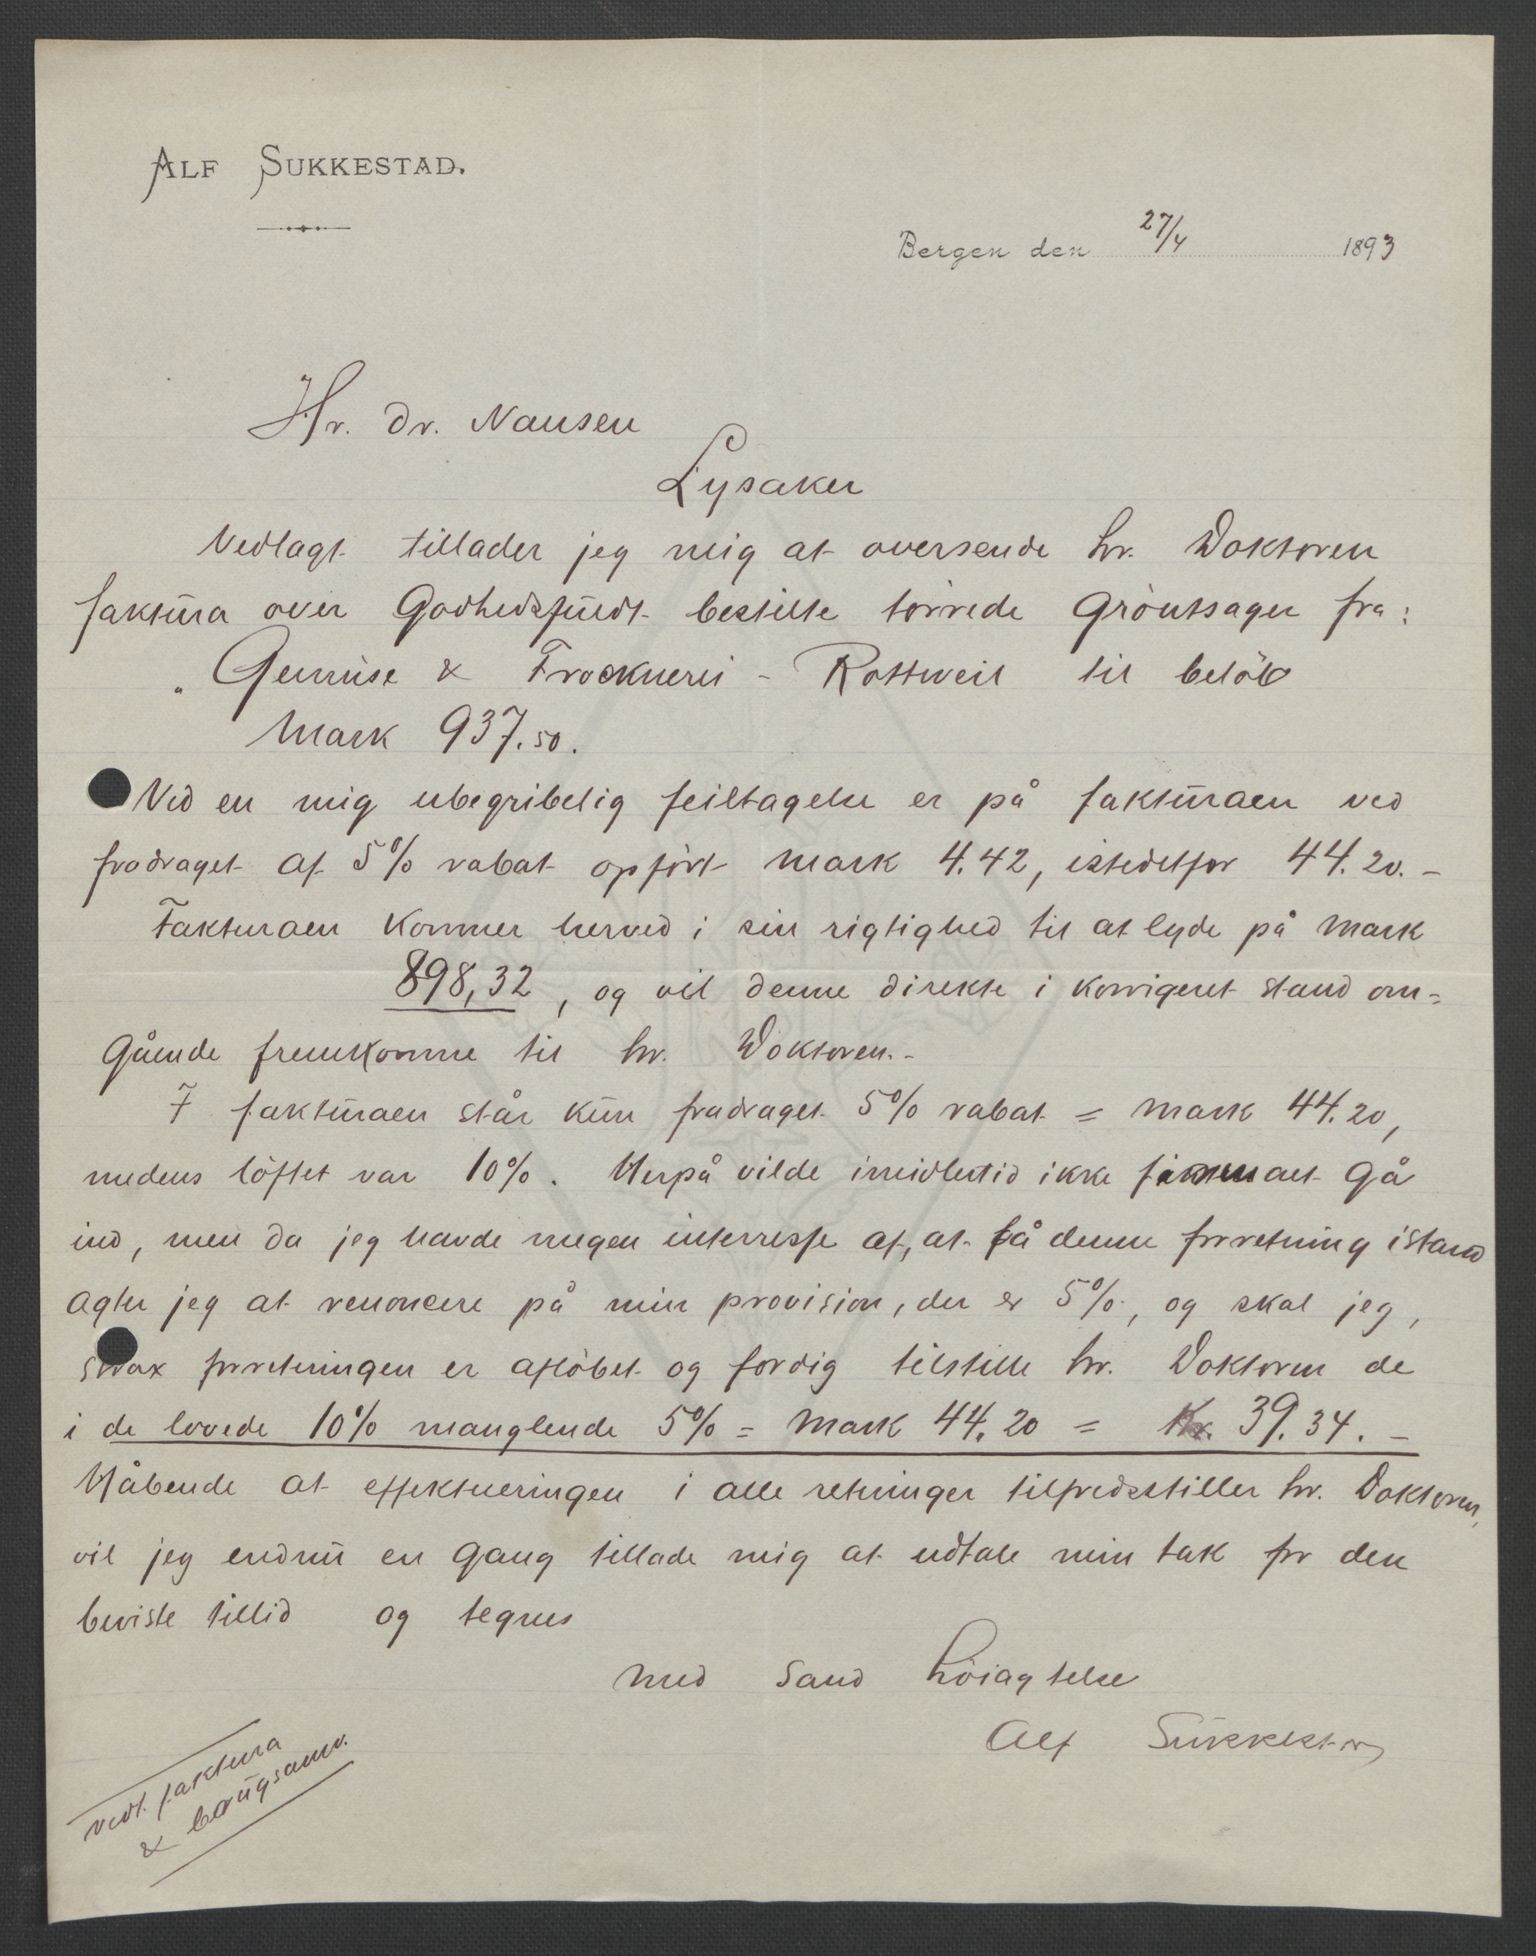 ALF SUKKESTAD.
Bergen den 27/4 1893
Hr. dr. Nansen
Lysaker
Vedlagt tillader jeg mig at oversende hr. Doktoren
faktura over Godhedsfuldt bestilte törrede Gröntsager fra:
„Gemüse & Trocknerei - Rottweil til belöb
Mark 937.50.
Ved en mig ubegribelig feiltagelse er på fakturaen ved
fradraget af 5% rabat opfört mark 4.42, istedetfor 44.20. -
Fakturaen kommer herved i sin rigtighed til at lyde på Mark
898,32, og vil denne direkte i korrigeret stand om=
gående fremkomme til hr. Doktoren. -
I fakturaen står kun fradraget 5% rabat = mark 44.20,
medens löftet var 10%. Herpå vilde imidlertid ikke firmaet gå
ind, men da jeg havde megen interresse af, at få denne forretning istand
agter jeg at renoncere på min provision, der er 5%, og skal jeg,
strax forretningen er aflöbet og færdig tilstille hr. Doktoren de
i de lovede 10% manglende 5% = Mark 44.20 = Kr. 39.34. -
Håbende at effektueringen i alle retninger tilfredsstiller hr. Doktoren,
vil jeg endnu en gang tillade mig at udtale min tak for den
beviste tillid og tegnes
med sand höiagtelse
Alf Sukkestad
vedl. faktura
& bougsanv.